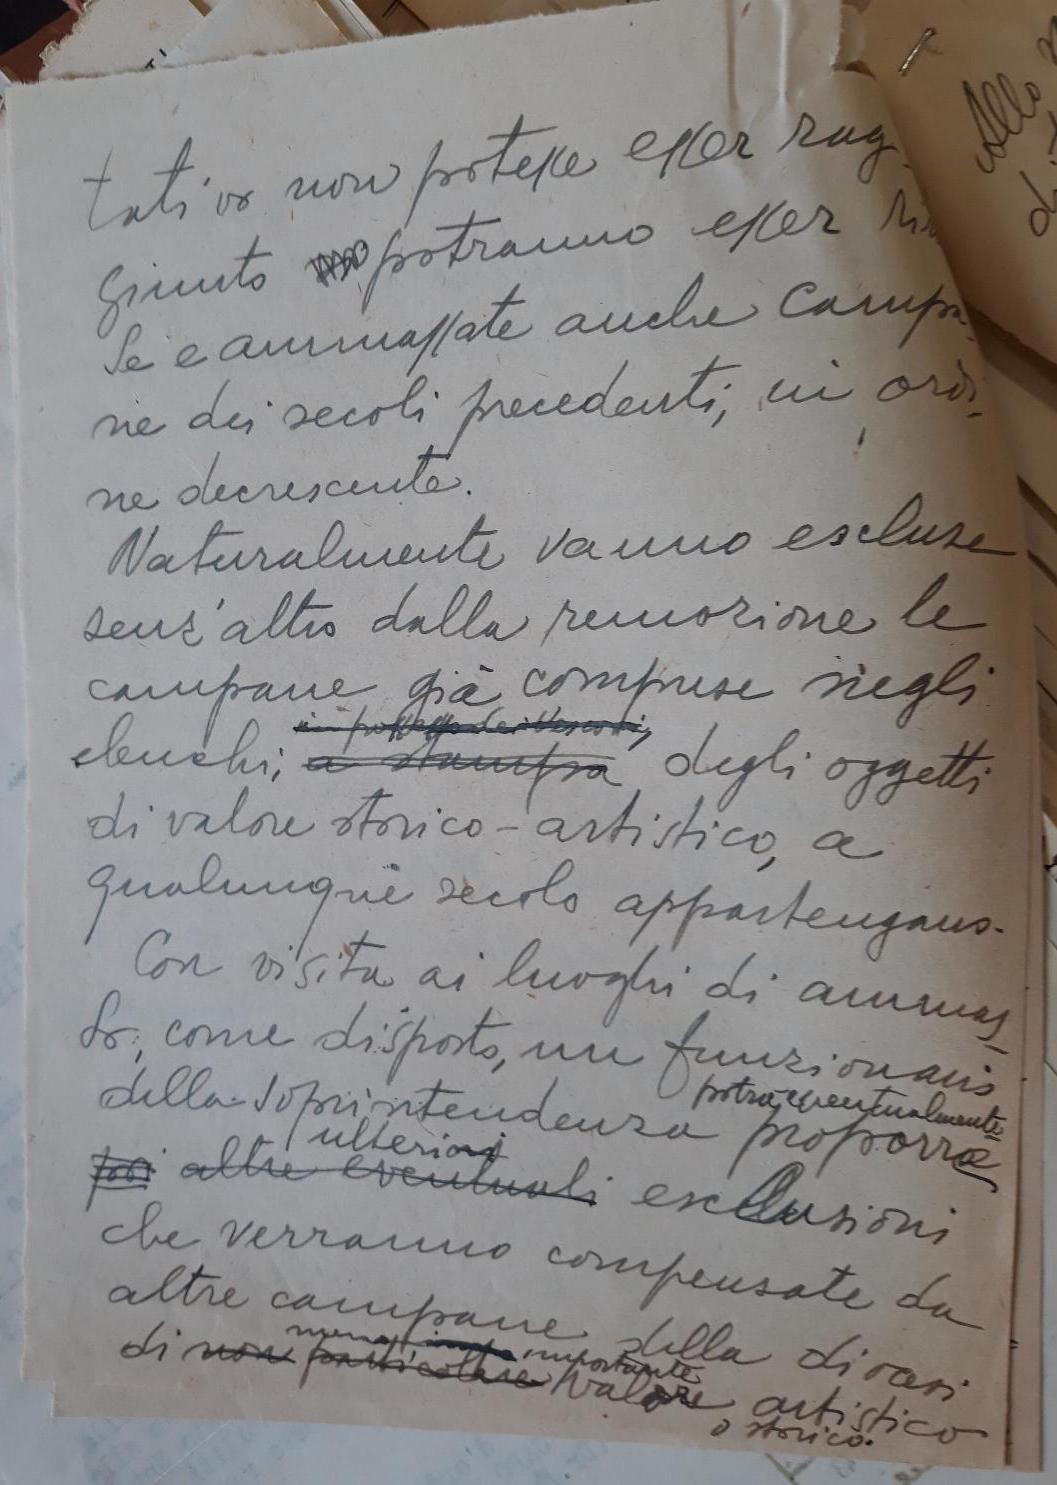 tativo non potesse esser rag-
giunto potranno esser
se e ammassate anche campa-
ne dei secoli precedenti, in ordi-
ne decrescente.
Naturalmente vanno escluse
senz'altro dalla remozione le
campane già comprese negli
in possesso dei Vescovi,
elenchi, a stampa degli oggetti
di valore storico-artistico, a
qualunque secolo appartengano.
Con visita ai luoghi di ammas-
so, come disposto, un funzionario
potrà, eventualmente
della Soprintendenza proporre
ulteriori
poi altre eventuali esclusioni
che verranno compensate da
altre campane della diocesi
meno importante
di non particolare valore artistico
o storico.
Allo
di